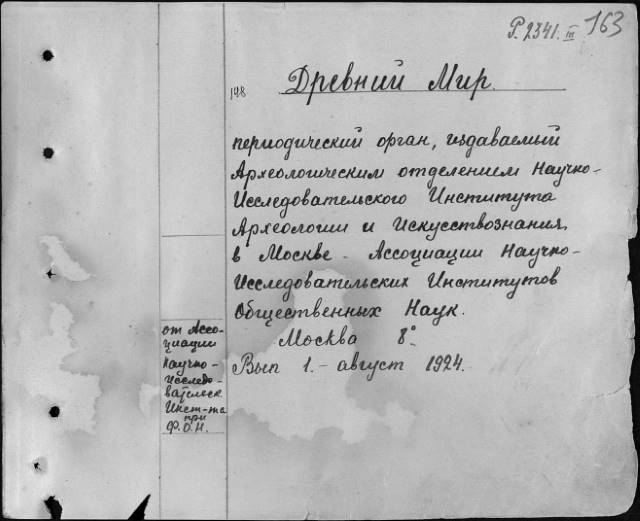 Р. 2341. III 163
198
Древний Мир.
периодический орган, издаваемый
Археологическим отделением Научно-
Исследовательского Института
Археологии и Искусствознания,
в Москве - Ассоциации Научно-
Исследовательских Институтов
Общественных Наук.
Москва 8°
Вып 1. - август 1924.
от Ассо-
циации
Научно-
Исследо-
вательск
Инст-та
при
Ф.О.Н.